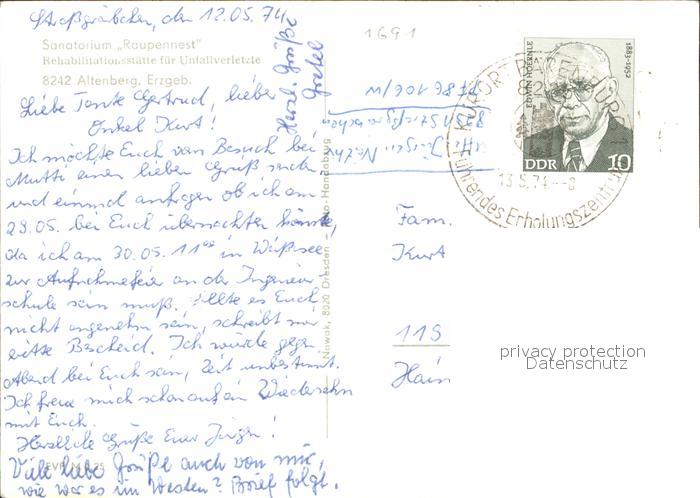 Straßgräbchen, den 12.05.74
Sanatorium „Raupennest"
Rehabilitationsstätte für Unfallverletzte
8242 Altenberg, Erzgeb.
Liebe Tante Gertrud, lieber
Onkel Kurt!
Ich möchte Euch vom Besuch bei
Mutti einen lieben Gruß senden
und einmal anfragen ob ich am
29.05. bei Euch übernachten könnte,
da ich am 30.05. 11⁰⁰ in
zur Aufnahmefeier an der Ingenieur-
schule sein muß. Sollte es Euch
nicht angenehm sein, schreibt mir
bitte Bescheid. Ich würde gegen
Abend bei Euch sein, Zeit unbestimmt.
Ich freue mich schon auf ein Wiedersehn
mit Euch.
Herzliche Grüße Euer Jürgen!
Viele liebe Grüße auch von mir,
wie war es im Westen? Brief folgt.
Herzl. Grüße
1691
Jürgen
Nowak, 8020 Dresden
Fam.
Kurt
115
Hain
EDWIN HOERNLE
1883-1952
DDR 10
KURORT
13.5.74--8
führendes Erholungszentrum
privacy protection
Datenschutz